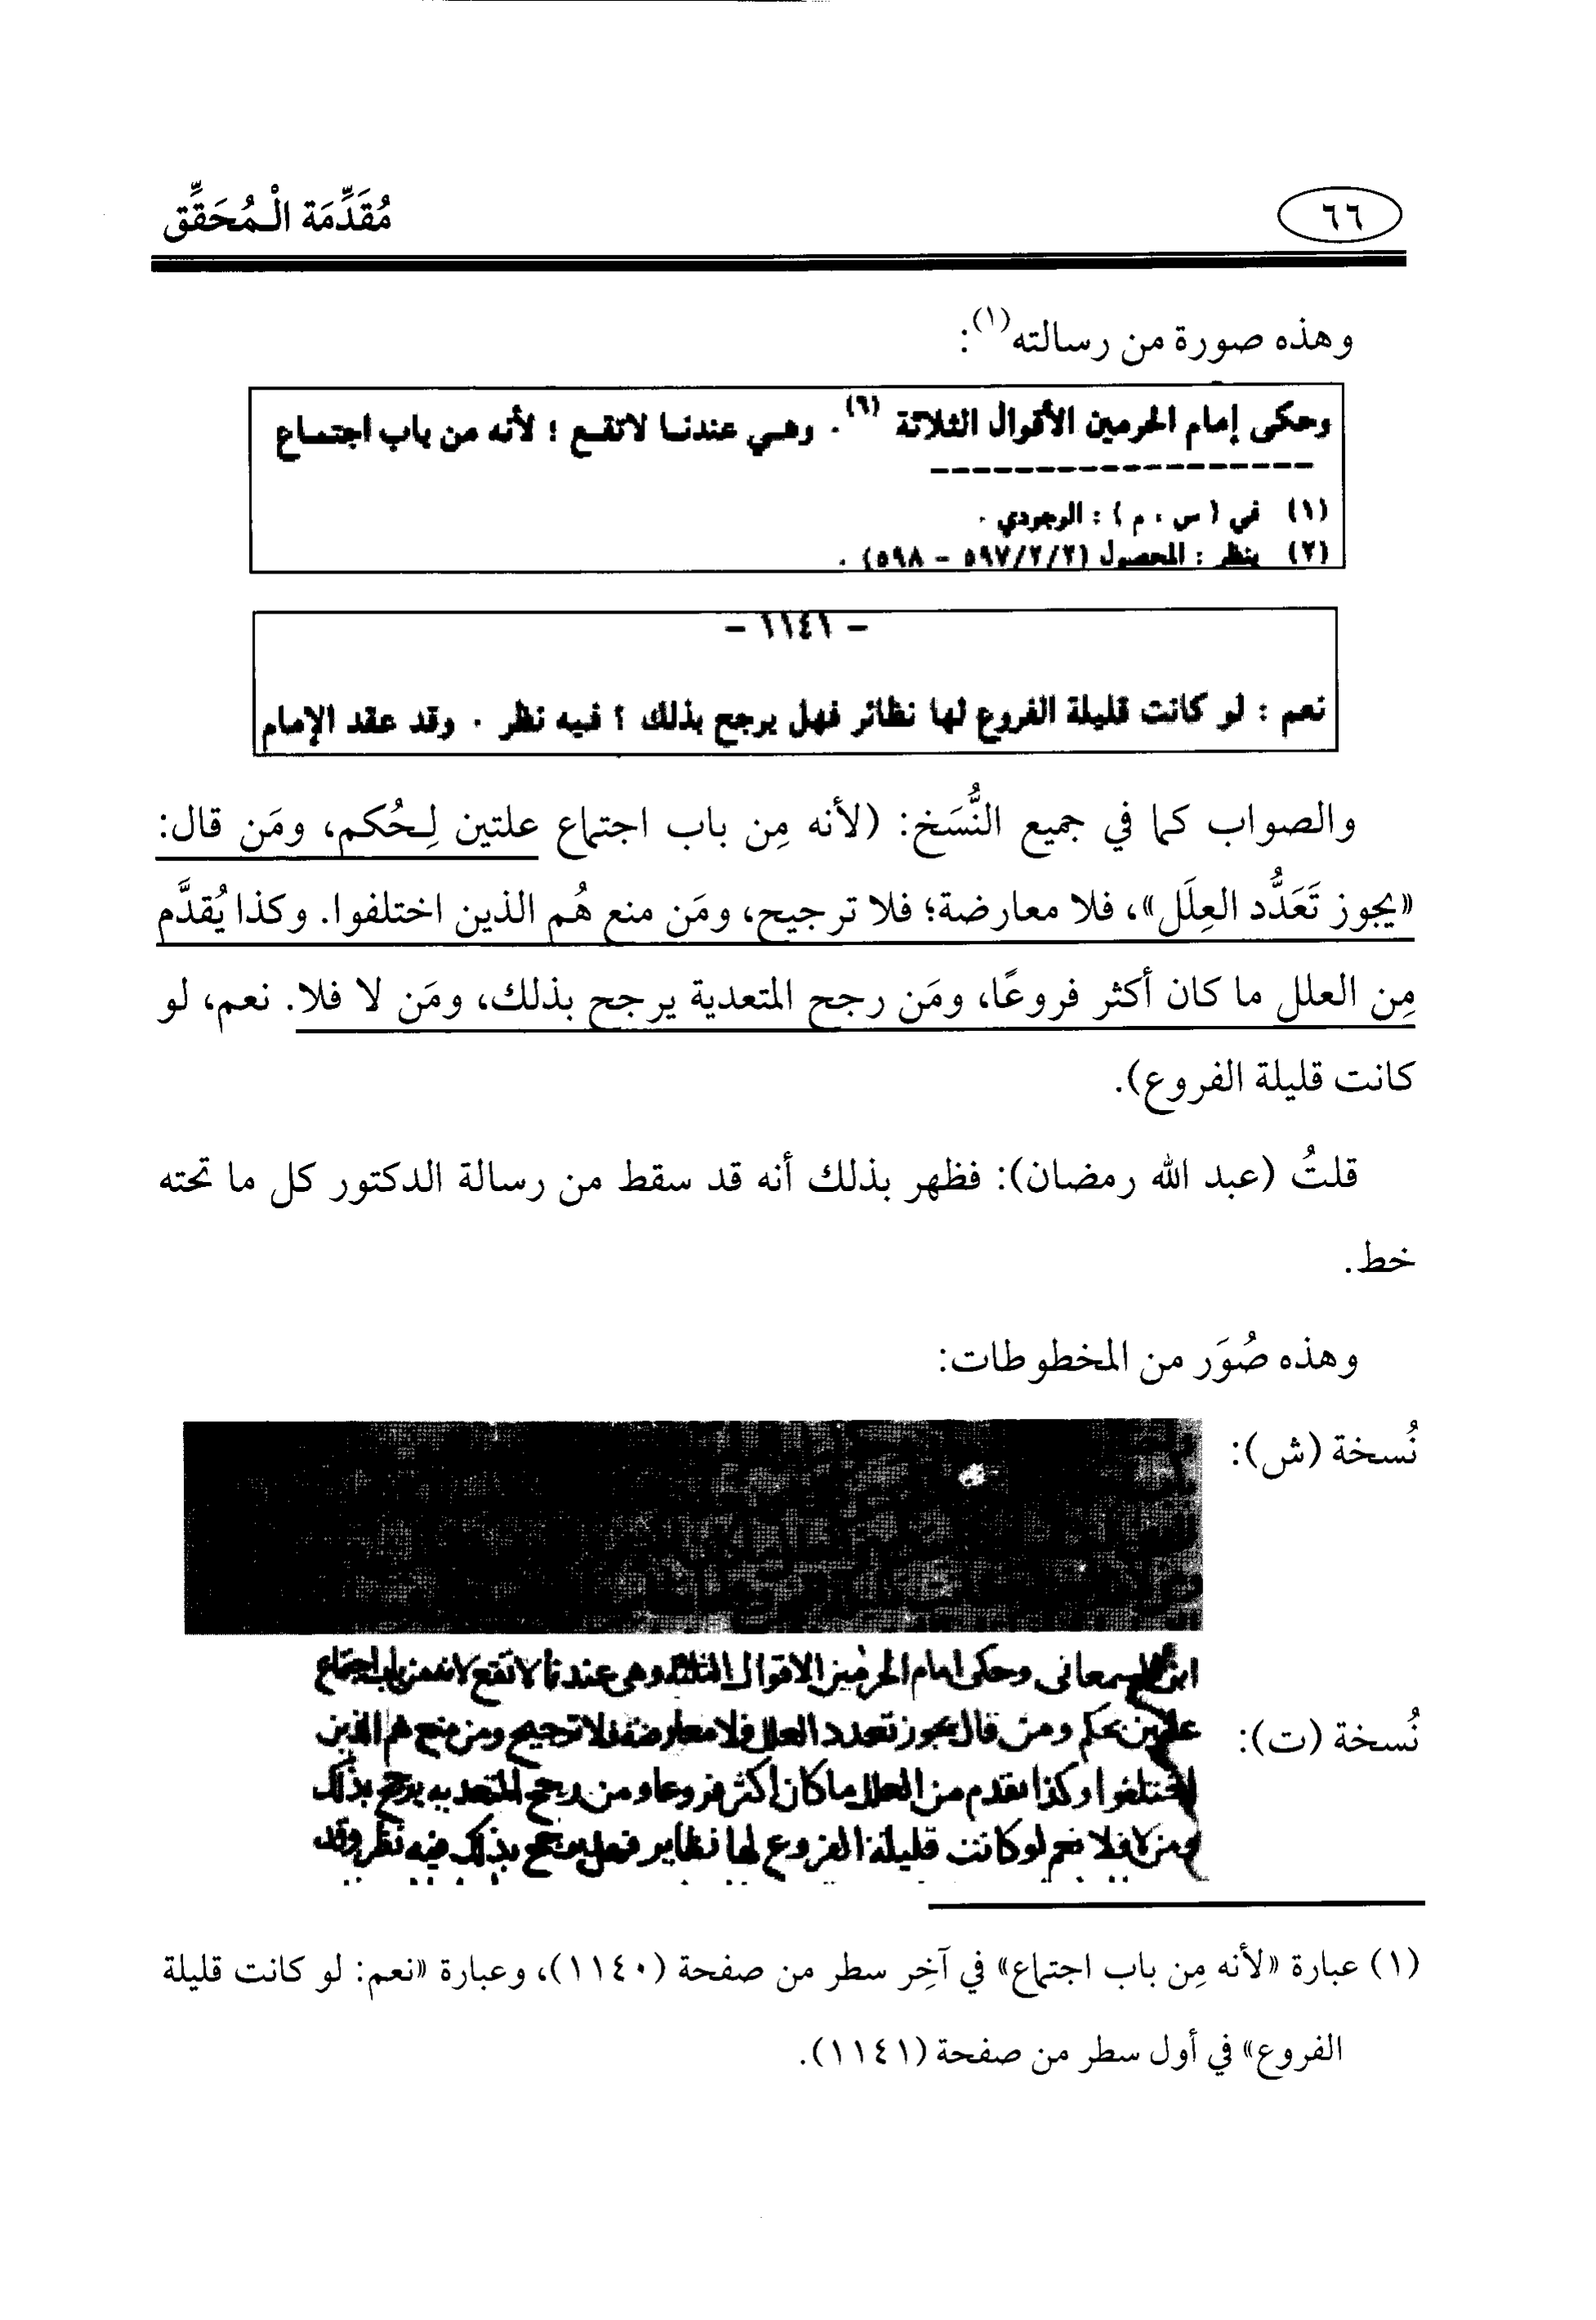 ٦٦
مُقَدِّمَة الْـمُحَقِّق
وهذه صورة من رسالته(١):
وحكى إمام الحرمين الأقوال الثلاثة (٦). وهـي عندنـا لاتقـع ؛ لأنه من باب اجتمـاع
(١) في ( س ، م ) : الوجودي .
(٢) ينظر : المحصول (٥٩٧/٢/٢ - ٥٩٨) .
- ١١٤١ -
نعم : لو كانت قليلة الفروع لها نظائر فهل يرجح بذلك ؟ فيه نظر . وقد عقد الإمام
والصواب كما في جميع النُّسَخ: (لأنه مِن باب اجتماع علتين لِـحُكم، ومَن قال:
«يجوز تَعَدُّد العِلَل»، فلا معارضة؛ فلا ترجيح، ومَن منع هُم الذين اختلفوا. وكذا يُقدَّم
مِن العلل ما كان أكثر فروعًا، ومَن رجح المتعدية يرجح بذلك، ومَن لا فلا. نعم، لو
كانت قليلة الفروع).
قلتُ (عبد الله رمضان): فظهر بذلك أنه قد سقط من رسالة الدكتور كل ما تحته
خط.
وهذه صُوَر من المخطوطات:
نُسخة (ش):
ابن السمعاني وحكى امام الحرمين الاقوال الثلاثة وهى عندنا لا تقع لانه من باب اجتماع
نُسخة (ت):
علتين لحكم ومن قال يجوز تعدد العلل فلا معارضة فلا ترجيح ومن منع هم الذين
اختلفوا وكذا يقدم من العلل ما كان اكثر فروعا ومن رجح المتعديه يرجح بذلك
ومن لا فلا نعم لو كانت قليلة الفروع لها نظاير فهل يرجح بذلك فيه نظر وقد
(١) عبارة «لأنه مِن باب اجتماع» في آخِر سطر من صفحة (١١٤٠)، وعبارة «نعم: لو كانت قليلة
الفروع» في أول سطر من صفحة (١١٤١).